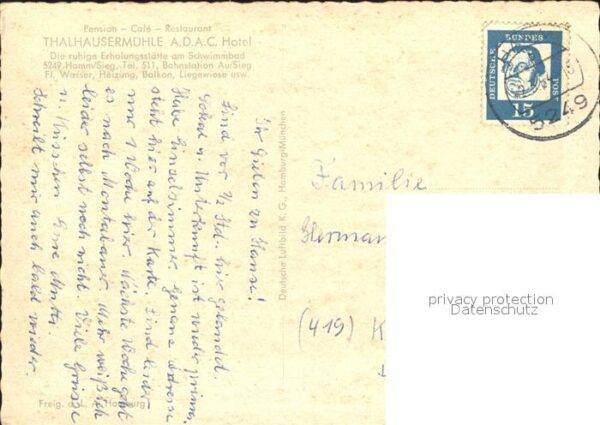 Pension – Café – Restaurant
THALHAUSERMÜHLE A.D.A.C. Hotel
Die ruhige Erholungsstätte am Schwimmbad
5249 Hamm/Sieg. Tel. 511, Bahnstation Au/Sieg
Fl. Wasser, Heizung, Balkon, Liegewiese usw.
Ihr Lieben zu Hause!
Sind vor ½ Std. hier gelandet.
Lokal u. Unterkunft ist wieder prima.
Habe Einzelzimmer. Genaue Adresse
steht hier auf der Karte. Sind leider
nur 1 Woche hier. Nächste Woche geht
es nach Montabaur. Mehr weiß ich
leider selbst noch nicht. Viele Grüsse
u. Küsschen Eure Mutti.
Schreibt mir auch bald wieder.
Deutsche Luftbild K. G., Hamburg-München
Freig. d. L. A. Hamburg
DEUTSCHE BUNDES POST
15
5249
Familie
Herman
(419) K
privacy protection
Datenschutz